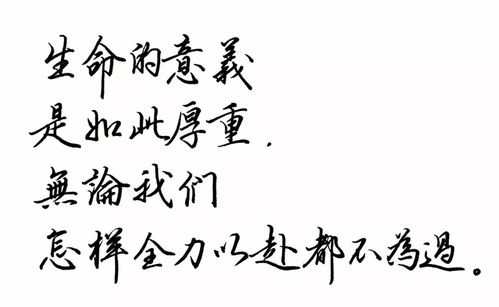 生命的意義
是如此厚重，
無論我们
怎样全力以赴都不為過。